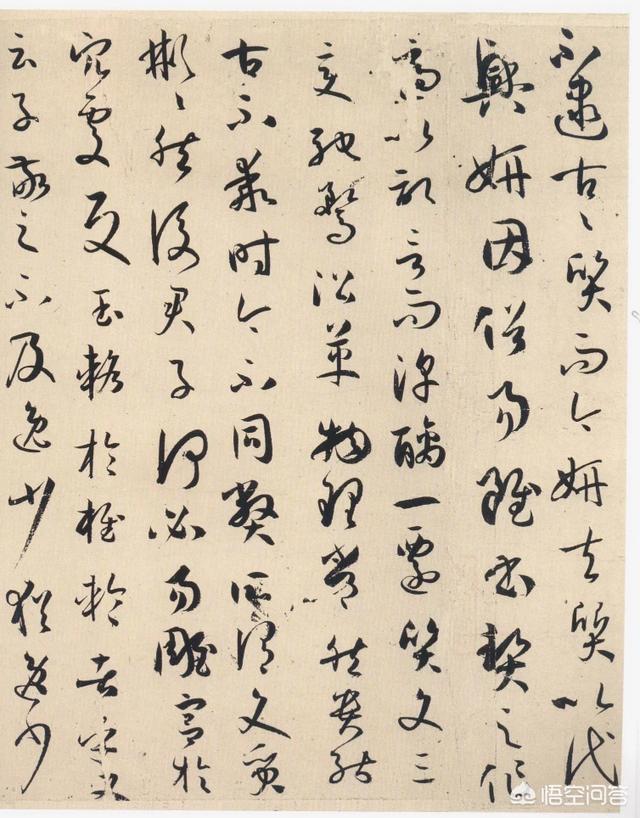 不逮古〻質而今妍夫質以代
興妍因俗易雖書契之作
適以記言而淳醨一遷質文三
變馳騖沿革物理常然貴能
古不乖時今不同弊所謂文質
彬〻然後君子何必易雕宮於
穴處反玉輅於椎輪者乎又
云子敬之不及逸少猶逸少
悟空问答